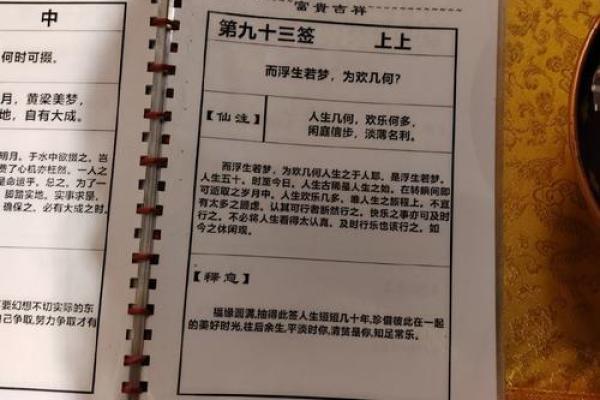 中
何时可掇。
月，黄梁美梦，
地，自有大成。
明月。于水中欲掇之。岂
费了心机亦枉然。一人之
是命运乎。总之。为了一
脚踏实地。实事求是。
确保之。必有大成之时
要幻想不切实际的东
自己争取,努力争取才有
富貴吉祥
第九十三签 上上
而浮生若梦，为欢几何？
【仙注】
人生几何，欢乐何多，
闲庭信步，淡薄名利。
而浮生若梦，为欢几何人生之于人耶，是浮生若梦。
人生五十。时至今日，人生古稀是人生之始。在转瞬间即
可近取之岁月中，人生欢乐几多，唯人生之旅程上，不宜
有太多之顾虑。认其可行者断然行之。快乐之事亦可及时
行之。不必将人生看得太认真。及时行乐也该行之。如
今之休闲观。
【释意】
福缘圆满,抽得此签人生短短几十年,珍借彼此在一起
的美好时光,往后余生,平淡时你,清贫是你,知足常乐。